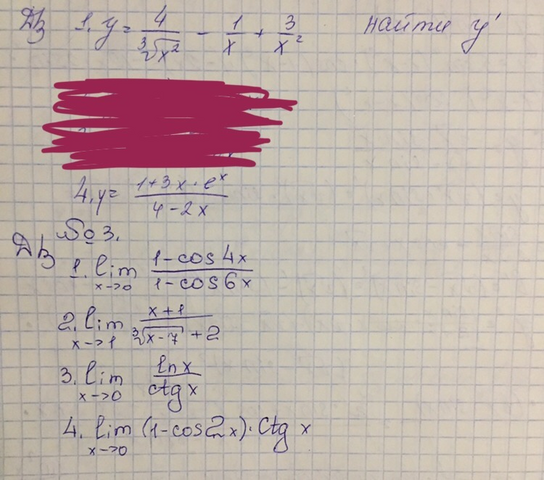 Дз 1. y = 4/∛x² - 1/x + 3/x² найти y'
4. y = (1+3x·eˣ)/(4-2x)
Дз №3.
1. lim x→0 (1-cos4x)/(1-cos6x)
2. lim x→1 (x+1)/(∛(x-7)+2)
3. lim x→0 lnx/ctgx
4. lim x→0 (1-cos2x)·Ctg x